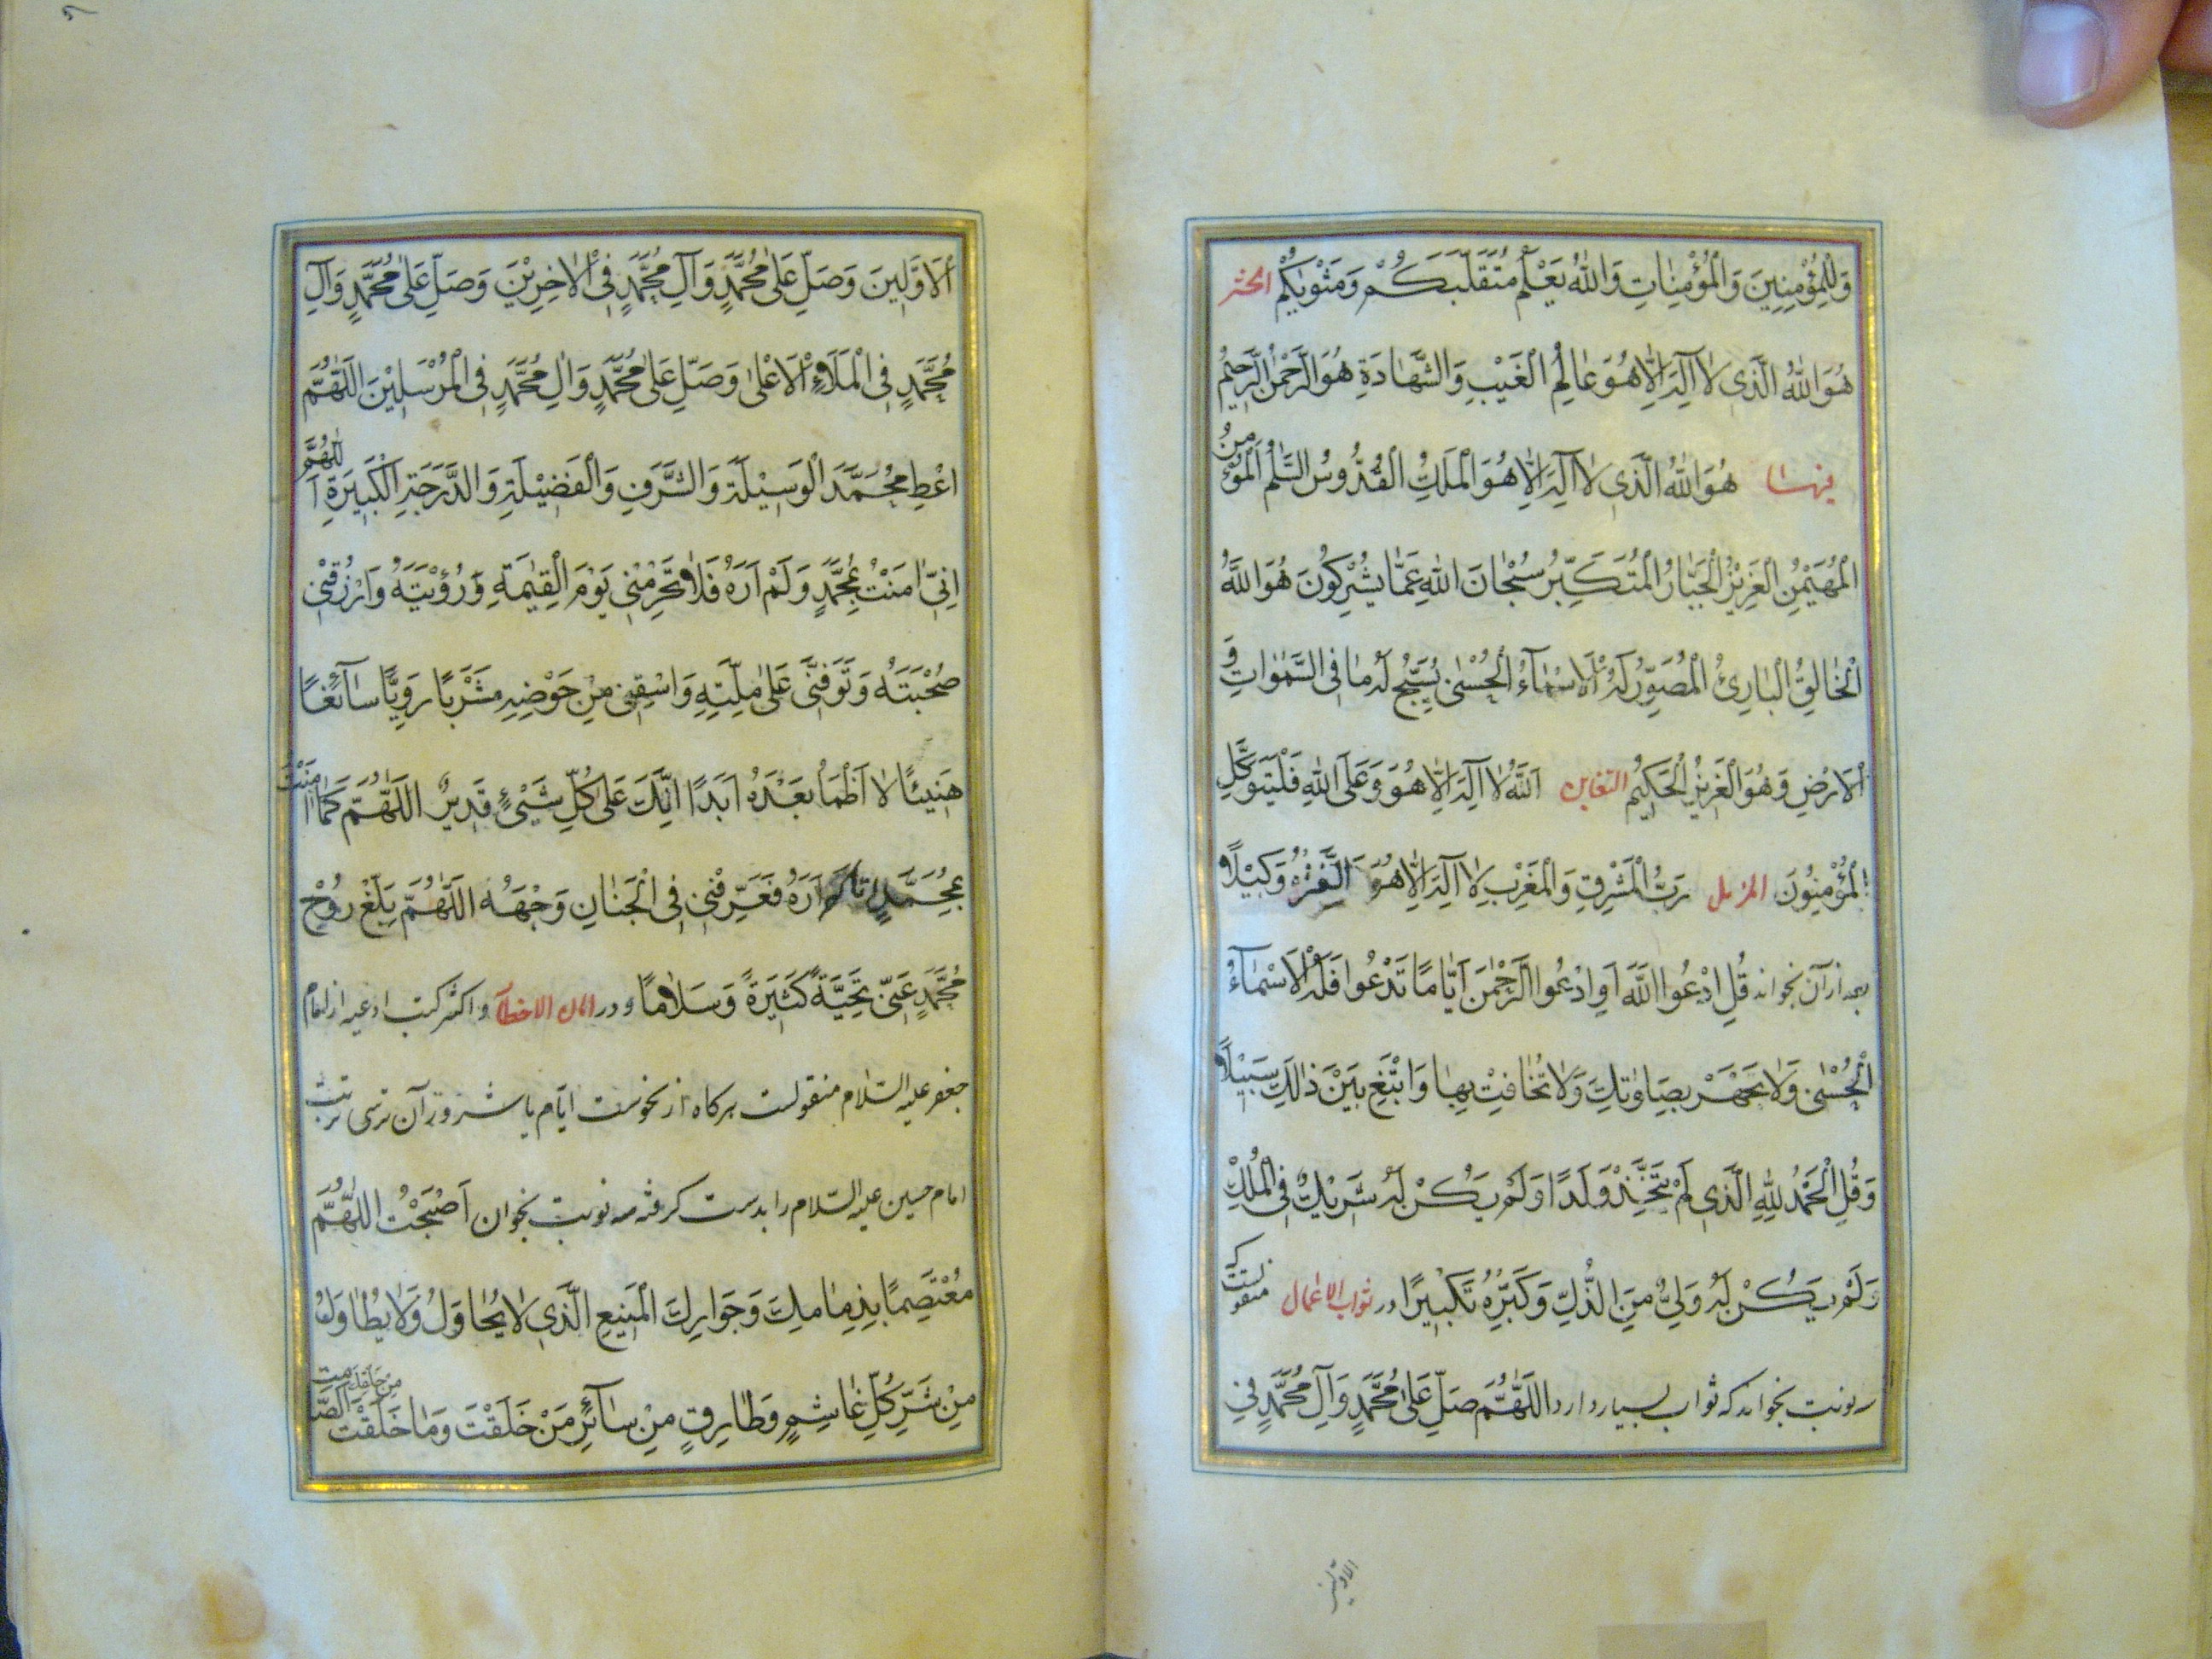 وَلِلْمُؤْمِنِينَ وَالْمُؤْمِنَاتِ وَاللّٰهُ يَعْلَمُ مُتَقَلَّبَكُمْ وَمَثْوٰیكُمْ الحشر
هُوَ اللّٰهُ الَّذِی لَا آلِهَ اِلَّا هُوَ عَالِمُ الْغَيْبِ وَالشَّهَادَةِ هُوَ الرَّحْمٰنُ الرَّحِيمُ
فیها هُوَ اللّٰهُ الَّذِی لَا آلِهَ اِلَّا هُوَ الْمَلِكُ الْقُدُّوسُ السَّلٰمُ الْمُؤْمِنُ
الْمُهَيْمِنُ الْعَزِيْزُ الْجَبَّارُ الْمُتَكَبِّرُ سُبْحَانَ اللّٰهِ عَمَّا يُشْرِكُونَ هُوَ اللّٰهُ
الْخَالِقُ الْبَارِئُ الْمُصَوِّرُ لَهُ الْاَسْمَآءُ الْحُسْنٰی يُسَبِّحُ لَهُ مَا فِی السَّمٰوَاتِ وَ
الْاَرْضِ وَهُوَ الْعَزِيزُ الْحَكِيمُ التغابن اَللّٰهُ لَا آلِهَ اِلَّا هُوَ وَعَلَی اللّٰهِ فَلْيَتَوَكَّلِ
الْمُؤْمِنُونَ المزمل رَبُّ الْمَشْرِقِ وَالْمَغْرِبِ لَا آلِهَ اِلَّا هُوَ فَاتَّخِذْهُ وَكِيْلًا
بعد از آن بخواند قُلِ ادْعُوا اللّٰهَ اَوِ ادْعُوا الرَّحْمٰنَ اَيًّا مَا تَدْعُوا فَلَهُ الْاَسْمَآءُ
الْحُسْنٰی وَلَا تَجْهَرْ بِصَلٰوتِكَ وَلَا تُخَافِتْ بِهَا وَابْتَغِ بَيْنَ ذٰلِكَ سَبِيْلًا
وَقُلِ الْحَمْدُ لِلّٰهِ الَّذِی لَمْ يَتَّخِذْ وَلَدًا وَلَمْ يَكُنْ لَهُ شَرِيْكٌ فِی الْمُلْكِ
وَلَمْ يَكُنْ لَهُ وَلِیٌّ مِنَ الذُّلِّ وَكَبِّرْهُ تَكْبِيْرًا در ثواب الاعمال منقولست که
سه نوبت بخواند که ثواب بسیار دارد اللّٰهُمَّ صَلِّ عَلٰی مُحَمَّدٍ وَآلِ مُحَمَّدٍ فِی
الاولین
الْاَوَّلِينَ وَصَلِّ عَلٰی مُحَمَّدٍ وَآلِ مُحَمَّدٍ فِی الْاٰخِرِيْنَ وَصَلِّ عَلٰی مُحَمَّدٍ وَآلِ
مُحَمَّدٍ فِی الْمَلَاءِ الْاَعْلٰی وَصَلِّ عَلٰی مُحَمَّدٍ وَاٰلِ مُحَمَّدٍ فِی الْمُرْسَلِيْنَ اللّٰهُمَّ
اعْطِ مُحَمَّدَ الْوَسِيْلَةَ وَالشَّرَفِ وَالْفَضِيْلَةِ وَالدَّرَجَةِ الْكَبِيرَةِ اَللّٰهُمَّ
اِنِّی اٰمَنْتُ بِمُحَمَّدٍ وَلَمْ اَرَهُ فَلَا تَحْرِمْنِی يَوْمَ الْقِيٰمَةِ رُؤْيَتَهُ وَارْزُقْنِی
صُحْبَتَهُ وَتَوَفَّنِی عَلٰی مِلَّتِهِ وَاسْقِنِی مِنْ حَوْضِهِ مَشْرَبًا رَوِيًّا سَآئِغًا
هَنِيئًا لَا اَظْمَاُ بَعْدَهُ اَبَدًا اِنَّكَ عَلٰی كُلِّ شَيْیءٍ قَدِيرٌ اللّٰهُمَّ كَمَا اٰمَنْتُ
بِمُحَمَّدٍ وَلَمْ اَرَهُ فَعَرِّفْنِی فِی الْجَنَانِ وَجْهَهُ اللّٰهُمَّ بَلِّغْ رُوْحَ
مُحَمَّدٍ عَنِّی تَحِيَّةً كَثِيرَةً وَسَلَامًا و در امان الاخطار و اکثر کتب ادعیه از امام
جعفر علیه السّلام منقولست هرکاه از نحوست ایّام یا شر و آن ترسی تربت
امام حسین علیه السّلام را بدست کرفته سه نوبت بخوان اَصْبَحْتُ اللّٰهُمَّ
مُعْتَصِمًا بِذِمَامِكَ وَجَوَارِكَ الْمَنِيعِ الَّذِی لَا يُحَاوَلُ وَلَا يُطَاوَلُ
مِنْ شَرِّ كُلِّ غَاشِمٍ وَطَارِقٍ مِنْ سَآئِرِ مَنْ خَلَقْتَ وَمَا خَلَقْتَ مِنْ خَلْقِكَ الصَّامِت